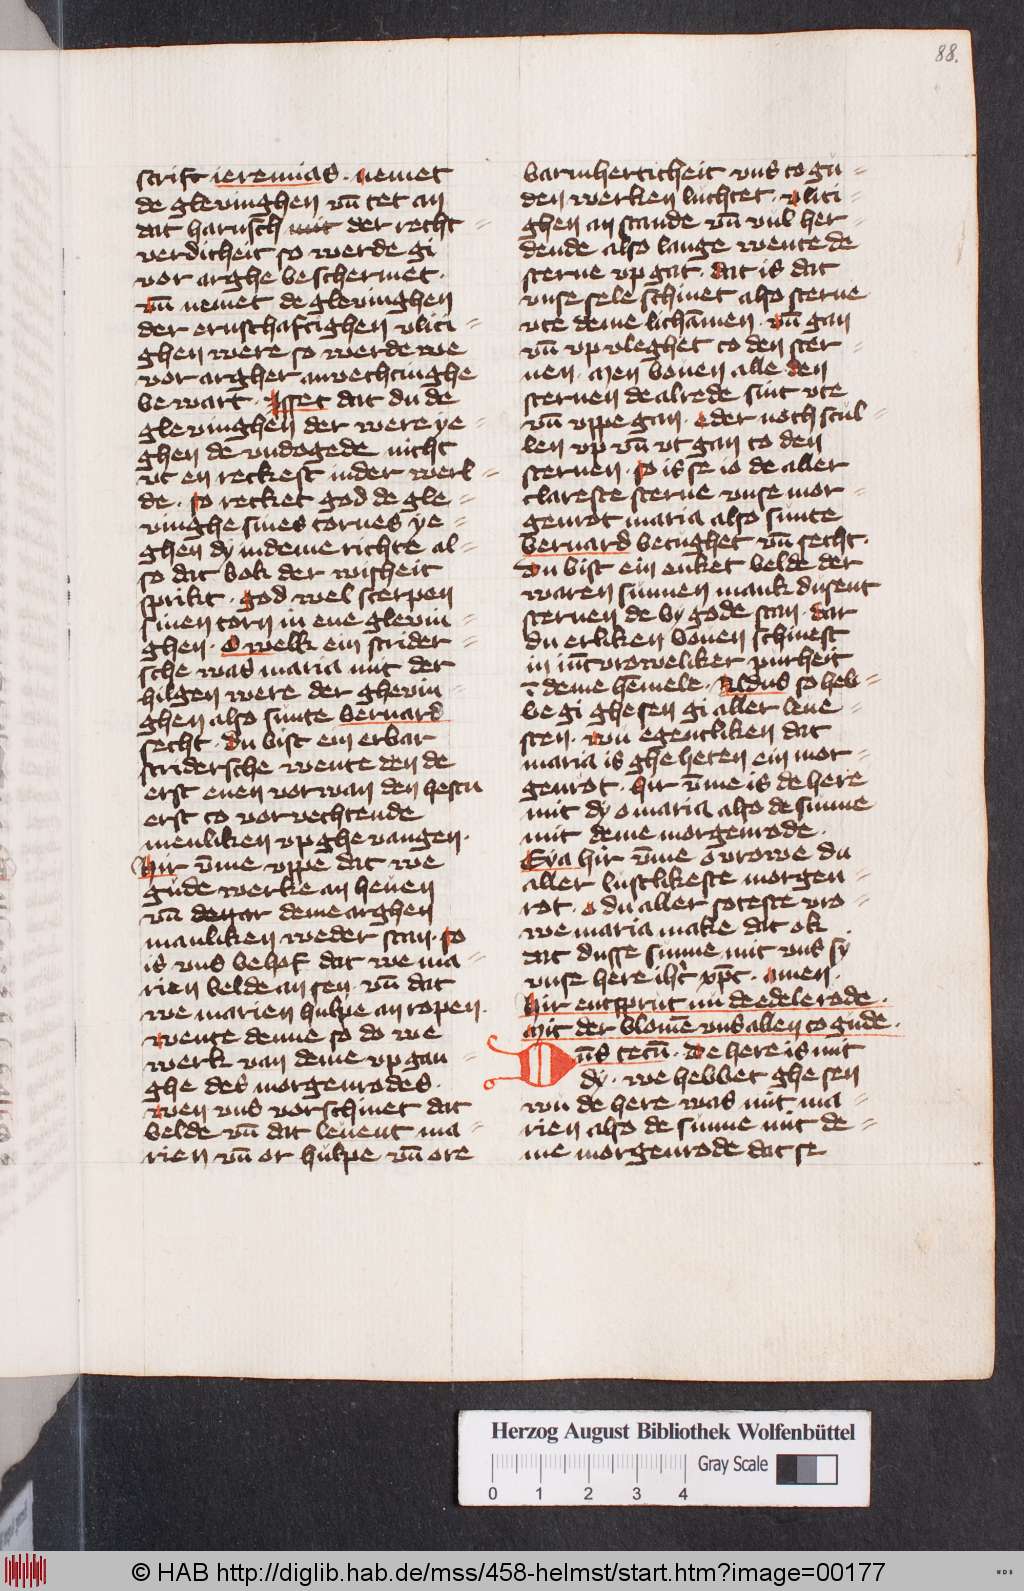 88.
scrift ieremias. nemet
de glevinghen vn̄ tet an
dat harnsch mit der recht=
verdicheit so werde gi
vor arghe beschermet.
vn̄ nemet de glevinghen
der ernschaftighen vliti=
ghen were so werde we
vor argher anvechtinghe
bewart. Isset dat du de
glevinghen der were ye=
ghen de vndogede nicht
vt en reckest inder werl=
de. so recket god de gle=
vinghe sines tornes ye=
ghen dy in deme richte al=
so dat bok der wisheit
sprikt. god wel scerpen
sinen torn in ene glevin=
ghen. O welk ein strider=
sche was maria mit der
hilgen were der glevin=
ghen also sunte bernard
secht. du bist ein erbar
stridersche wente den de
erst even vorwan den hestu
erst to vorvechtende
menliken vpghevangen.
Hir v̄me vppe dat we
gude werke an heven
vn̄ denar deme arghen
manliken weder stan. so
is vns behof dat we ma=
rien belde an sen vn̄ dat
we marien hulpe an ropen.
wente denne so do we
werk van deme vpgan=
ghe des morgenrodes.
wen vns vorschinet dat
belde vn̄ dat levent ma=
rien vn̄ or hulpe vn̄ ore
barmherticheit vns to gu=
den werken luchtet. vliti=
ghen an stande vn̄ vul her=
dende also lange wente de
sterne vp gat. dat is dat
vnse sele schinet also sterne
vte deme lichāmen. vn̄ gan
vn̄ vp vleghet to den ster=
nen. Men boven alle den
sternen de alrede sint vte
vn̄ vppe gan. eder noch scul=
len vp vn̄ vt gan to den
sternen. so is se io de aller
clareste sterne vnse mor=
genrot maria also sunte
bernard betughet vn̄ secht.
du bist ein enket belde der
waren sunnen mank dusent
sternen de by gode stan. dar
du erliken boven schinest
in iūcvroweliker purheit
ī deme hēmele. Aldus so heb=
be gi ghesen gi aller leve=
sten. wu egentliken dat
maria is gheheten ein mor=
genrot. hir v̄me is de here
mit dy o maria also de sunne
mit deme morgenrode.
Eya hir v̄me o vrowe du
aller lustlikeste morgen=
rot. o du aller soteste vro=
we maria make dat ok
dat dusse sunne mit vns sy
vnse here ih̄c xp̄c. amen.
Hir entsprut nu de edele rode.
Mit der blomē vns allen to gude.
Dn̄s tecū. De here is mit
dy. we hebbet ghesen
wu de here was mit ma=
rien also de sunne mit de=
me morgenrode dat se
Herzog August Bibliothek Wolfenbüttel
Gray Scale
0 1 2 3 4
© HAB http://diglib.hab.de/mss/458-helmst/start.htm?image=00177